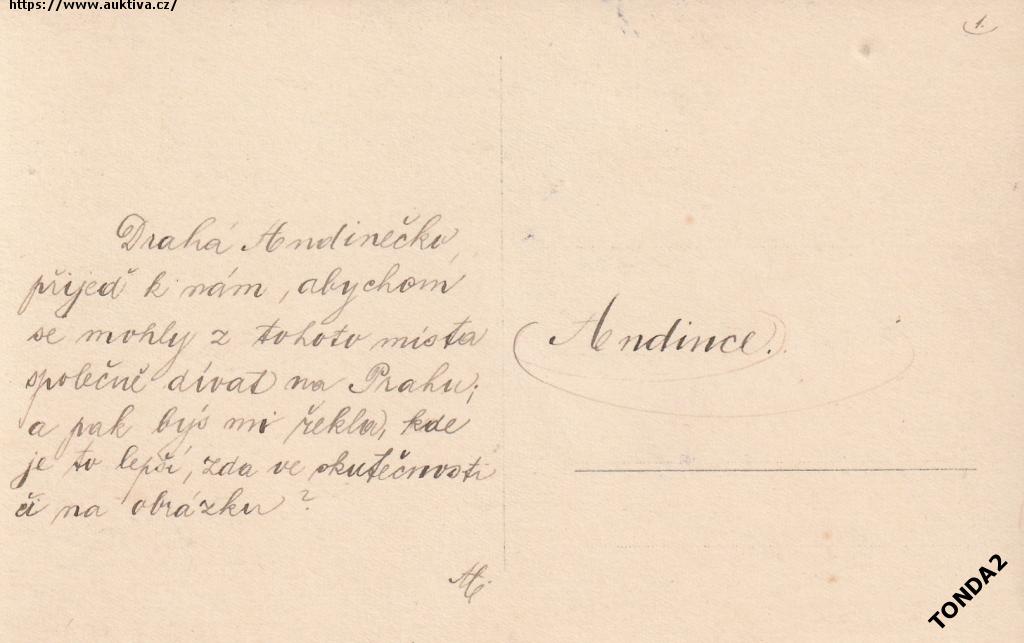 https://www.auktiva.cz/
1.
Drahá Andinečko,
přijeď k nám, abychom
se mohly z tohoto místa
společně dívat na Prahu,
a pak bys mi řekla, kde
je to lepší, zda ve skutečnosti
či na obrázku?
Andince.
TONDA2